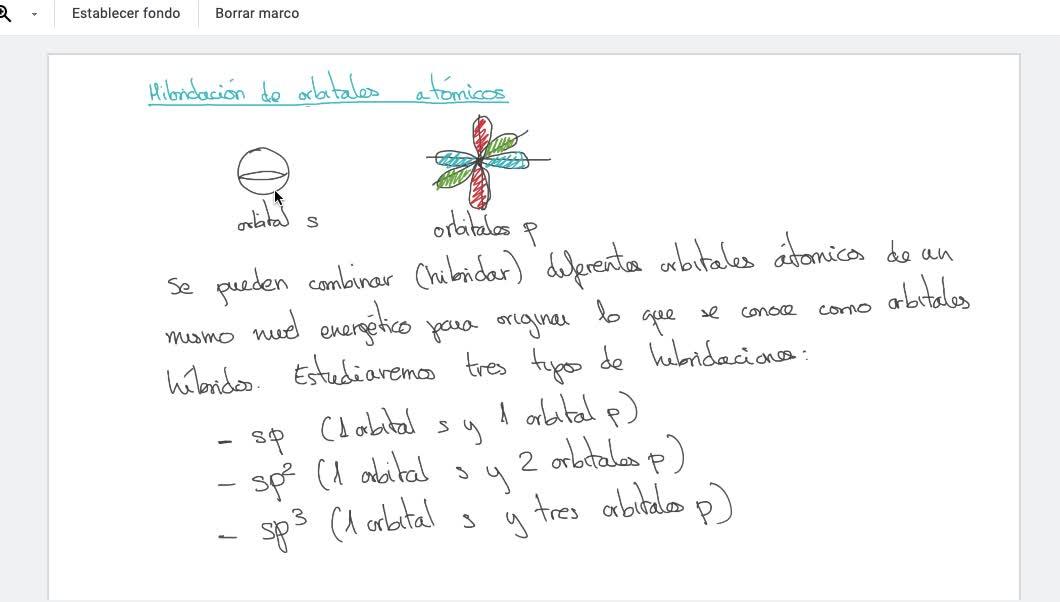 Establecer fondo Borrar marco
Hibridación de orbitales atómicos
orbital s
orbitales p
Se pueden combinar (hibridar) diferentes orbitales átomicos de un
mismo nivel energético para originar lo que se conoce como orbitales
híbridos. Estudiaremos tres tipos de hibridaciones:
- sp (1 orbital s y 1 orbital p)
- sp² (1 orbital s y 2 orbitales p)
- sp³ (1 orbital s y tres orbitales p)